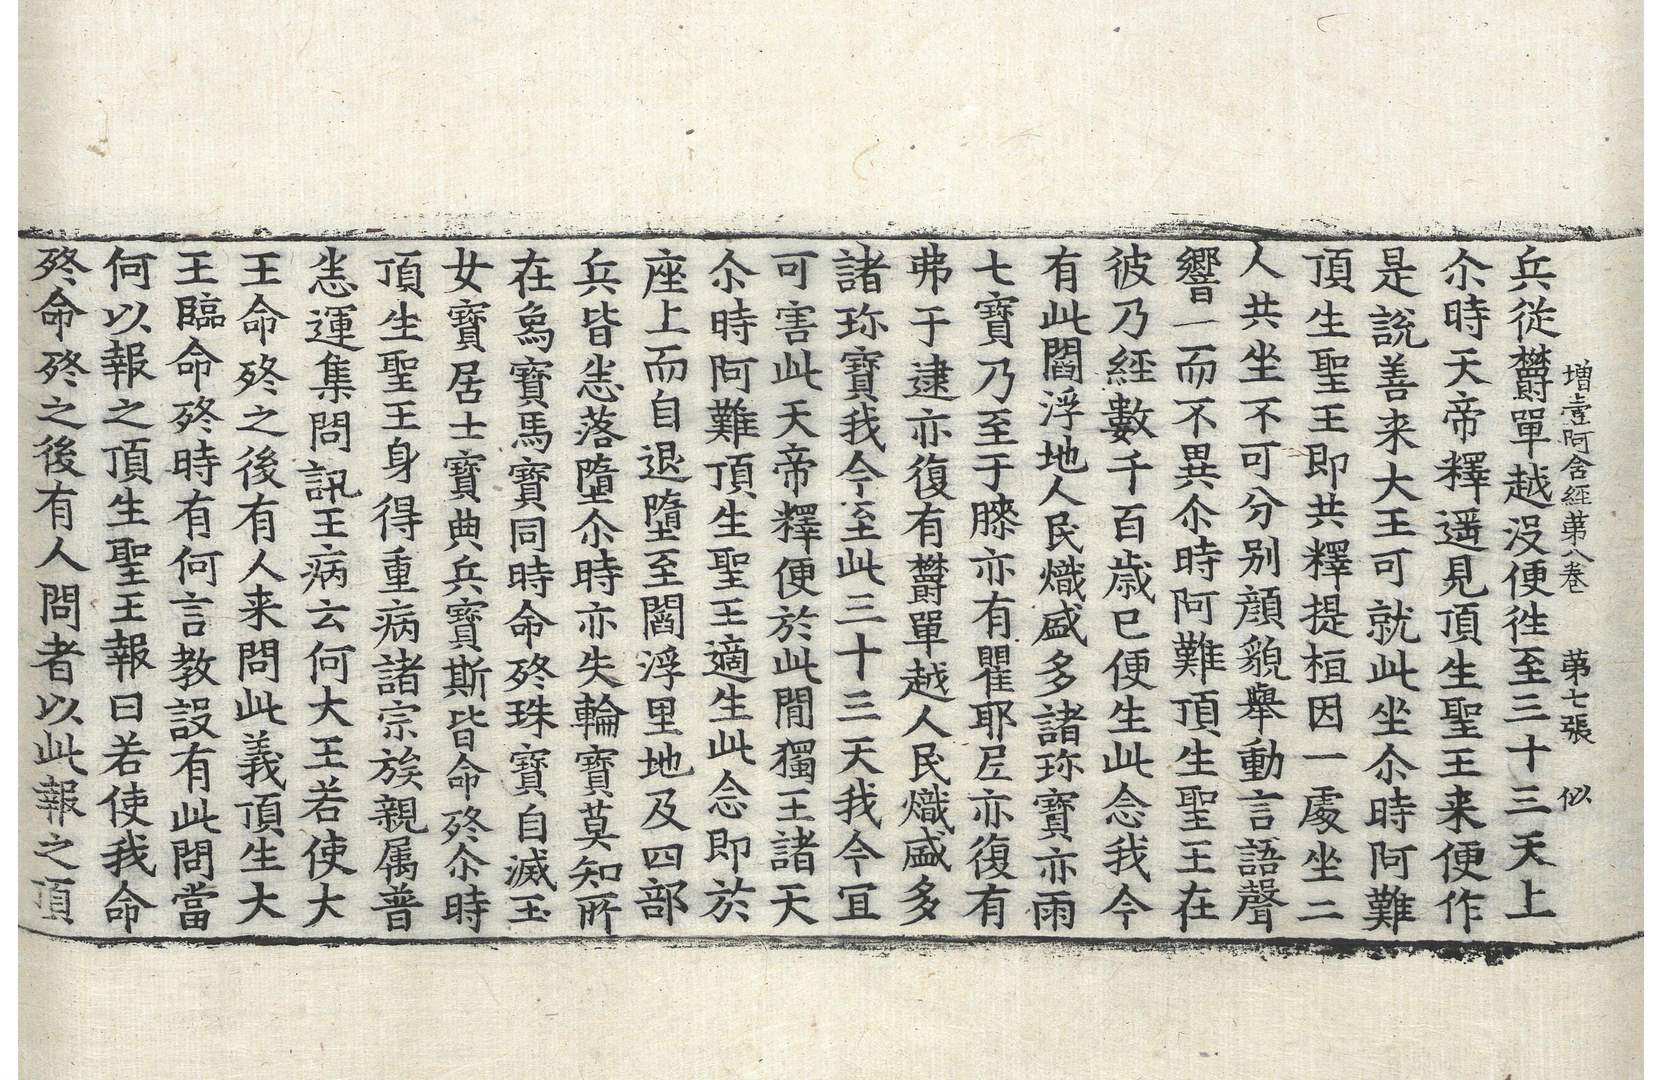 增壹阿含經第八卷 第七張 似
兵從欝單越沒便徃至三十三天上
尒時天帝釋遥見頂生聖王来便作
是說善来大王可就此坐尒時阿難
頂生聖王即共釋提桓因一處坐二
人共坐不可分别顔貌舉動言語聲
響一而不異尒時阿難頂生聖王在
彼乃經數千百歳已便生此念我今
有此閻浮地人民熾盛多諸珎寶亦雨
七寶乃至于膝亦有瞿耶尼亦復有
弗于逮亦復有欝單越人民熾盛多
諸珎寶我今至此三十三天我今冝
可害此天帝釋便於此間獨王諸天
尒時阿難頂生聖王適生此念即於
座上而自退墮至閻浮里地及四部
兵皆㤀落墮尒時亦失輪寶莫知所
在象寶馬寶同時命終珠寶自滅玉
女寶居士寶典兵寶斯皆命終尒時
頂生聖王身得重病諸宗族親属普
悉運集問訊王病云何大王若使大
王命終之後有人来問此義頂生大
王臨命終時有何言教設有此問當
何以報之頂生聖王報曰若使我命
終命終之後有人問者以此報之頂